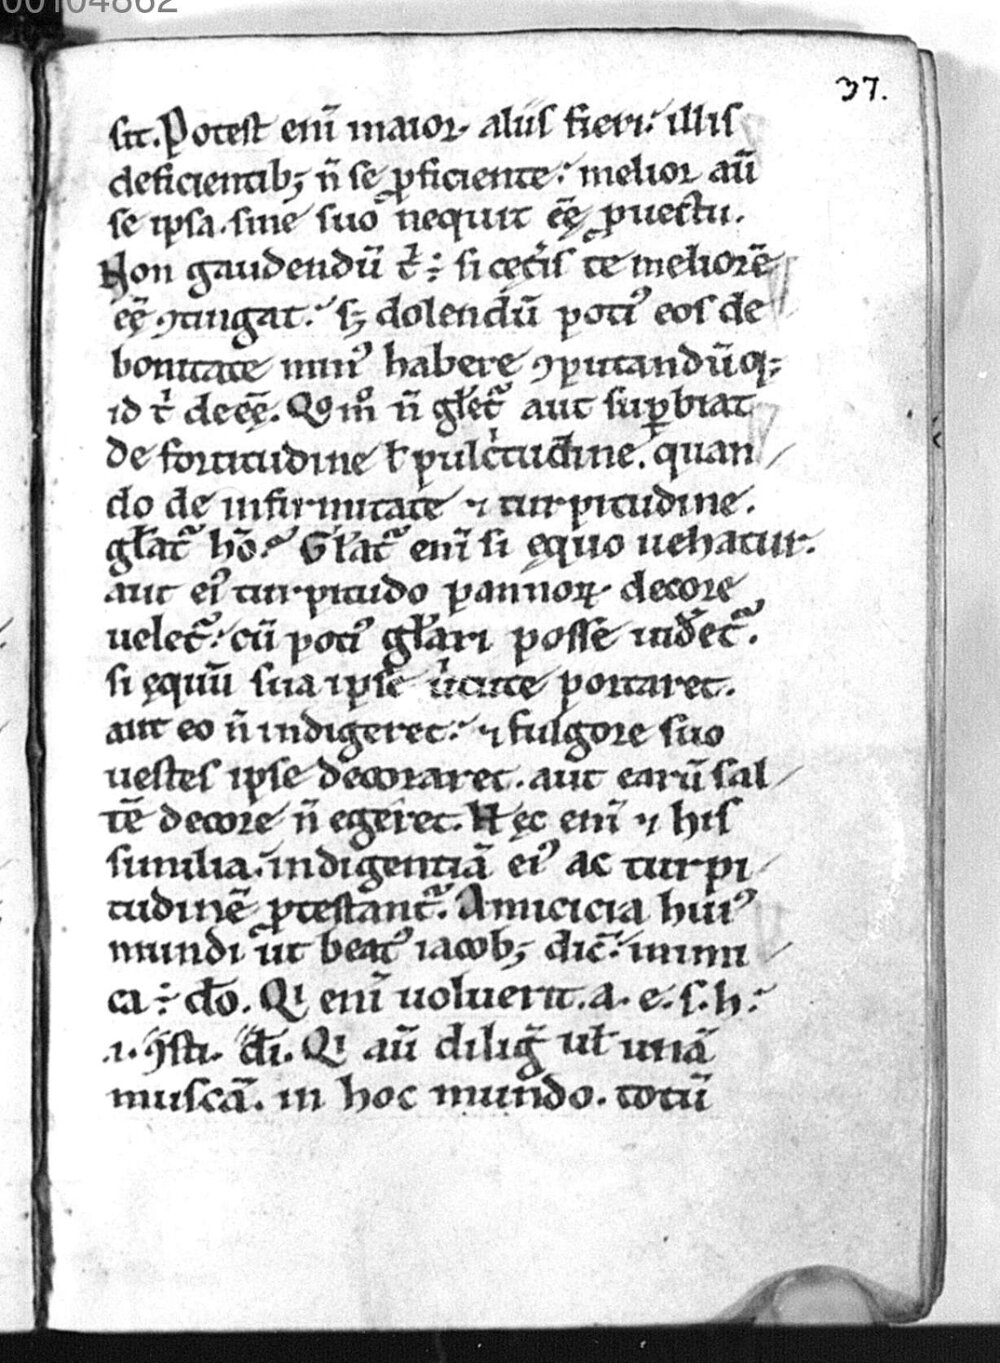 00104862
37.
sit. Potest eni̅ maior aliis fieri: illis
deficientib; n̅ se ꝓficiente: melior au̅
se ipsa. sine suo nequit e̅e̅ ꝓuectu.
Non gaudendu̅ t̉ : si cęt̉is te meliore̅
e̅e̅ ꝯtingat: sꝫ dolendu̅ potiꝰ eos de
bonitate minꝰ habere ꝯputandu̅q;
id t̉ dee̅e̅. Qͦ mͦ n̅ gl̅et᷑ aut suꝑbiat
de fortitudine ł pulc̉tudine. quan
do de infirmitate ⁊ turpitudine.
gl̅at᷑ ho̅. Gl̅at᷑ eni̅ si ęquo uehatur.
aut eiꝰ turpitudo pannoꝝ decore
uelet᷑: cu̅ potiꝰ gl̅ari posse uidet᷑.
si ęquu̅ sua ipse uͥtute portaret.
aut eo n̅ indigeret: ⁊ fulgore suo
uestes ipse decoraret. aut earu̅ sal
te̅ decore n̅ egeret. Hęc eni̅ ⁊ his
similia. indigentia̅ eiꝰ ac turpi
tudine̅ ꝓtestant᷑. Amicicia huiꝰ
mundi ut beatꝰ iacob; dic̅: inimi
ca ÷ do̅. Qi eni̅ uoluerit. a. e. s. h.
.i. ꝯsti. di̅. Qi au̅ dilig̅ ul̅ una̅
musca̅. in hoc mundo. totu̅